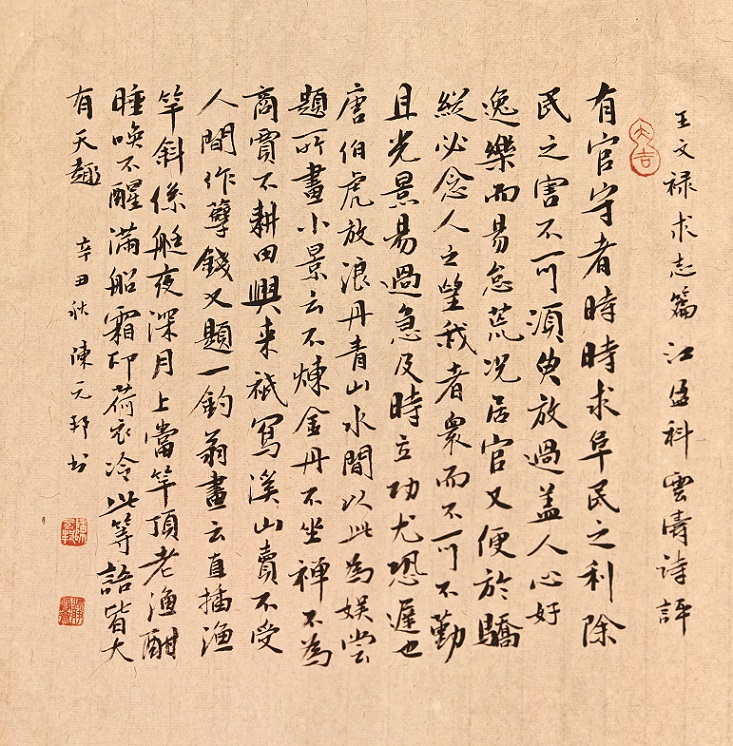 王文禄求志篇 江盈科雲濤诗評
大吉
有官守者時時求阜民之利除
民之害不可須臾放過盖人心好
逸樂而易怠荒况居官又便於驕
縱必念人之望我者衆而不可不勤
且光景易過急及時立功尤恐遲也
唐伯虎放浪丹青山水間以此為娱尝
題所畫小景云不煉金丹不坐禅不為
商賈不耕田興来祗寫溪山賣不受
人間作孽錢又題一釣翁畫云直插渔
竿斜係艇夜深月上當竿頂老渔酣
睡唤不醒滿船霜印荷衣冷此等語皆大
有天趣 辛丑秋 陳元邦书